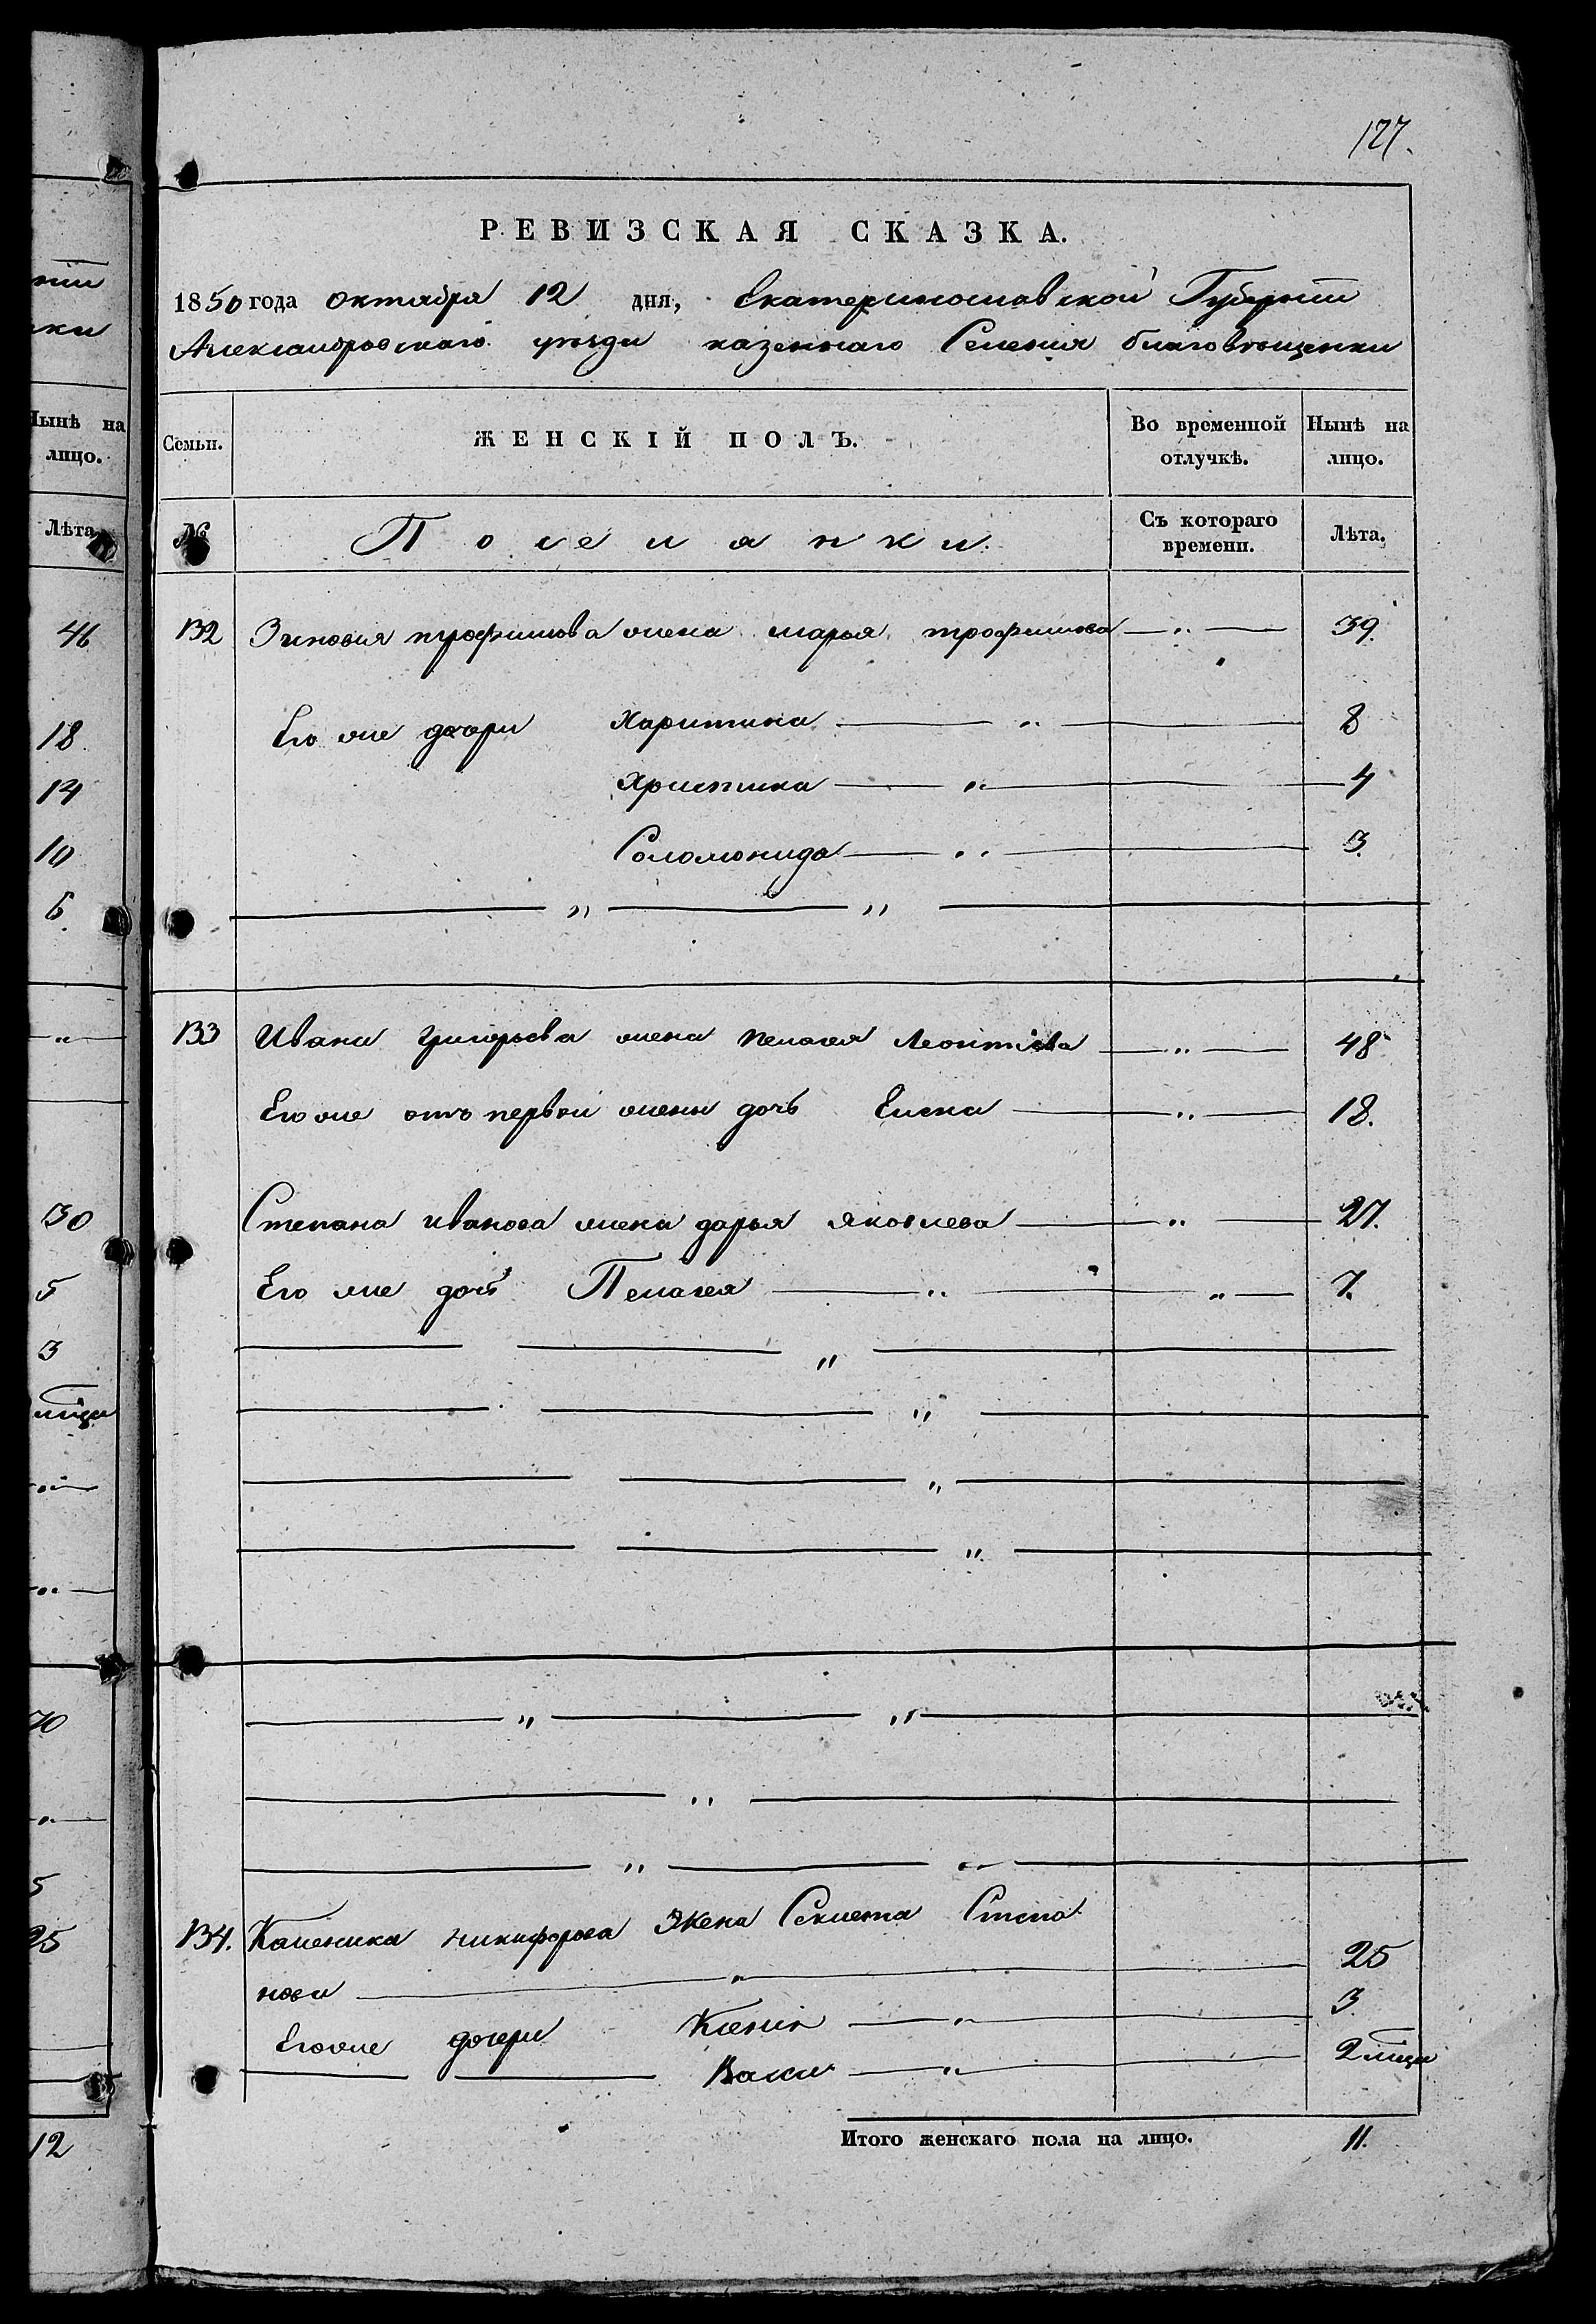 127.
РЕВИЗСКАЯ СКАЗКА.
1850 года октября 12 дня, Екатеринославской Губернии
Александровскаго уѣзда казеннаго Селения благовѣщенки
Нынѣ на лицо.
Лѣта
46
18
14
10
6.
30
5
3
70
5
25
12
Семьи. ЖЕНСКІЙ ПОЛЪ. Во временной отлучкѣ. Нынѣ на лицо.
№ Поселянки. Съ котораго времени. Лѣта.
132 Зиновия трофимова жена марья трофимова 39.
Его же дочери Харитина 8
Христина 4
Соломонида 3.
133 Ивана григорьева жена пелагея Леонтіева 48
Его же отъ первой жены дочь Елена 18.
Степана иванова жена дарья яковлева 27.
Его же дочь Пелагея 7.
134. Каленика никифорова Жена Секлета Степа
нова 25
Его же дочери Ксенія 3.
2 мѣца
Итого женскаго пола на лицо. 11.